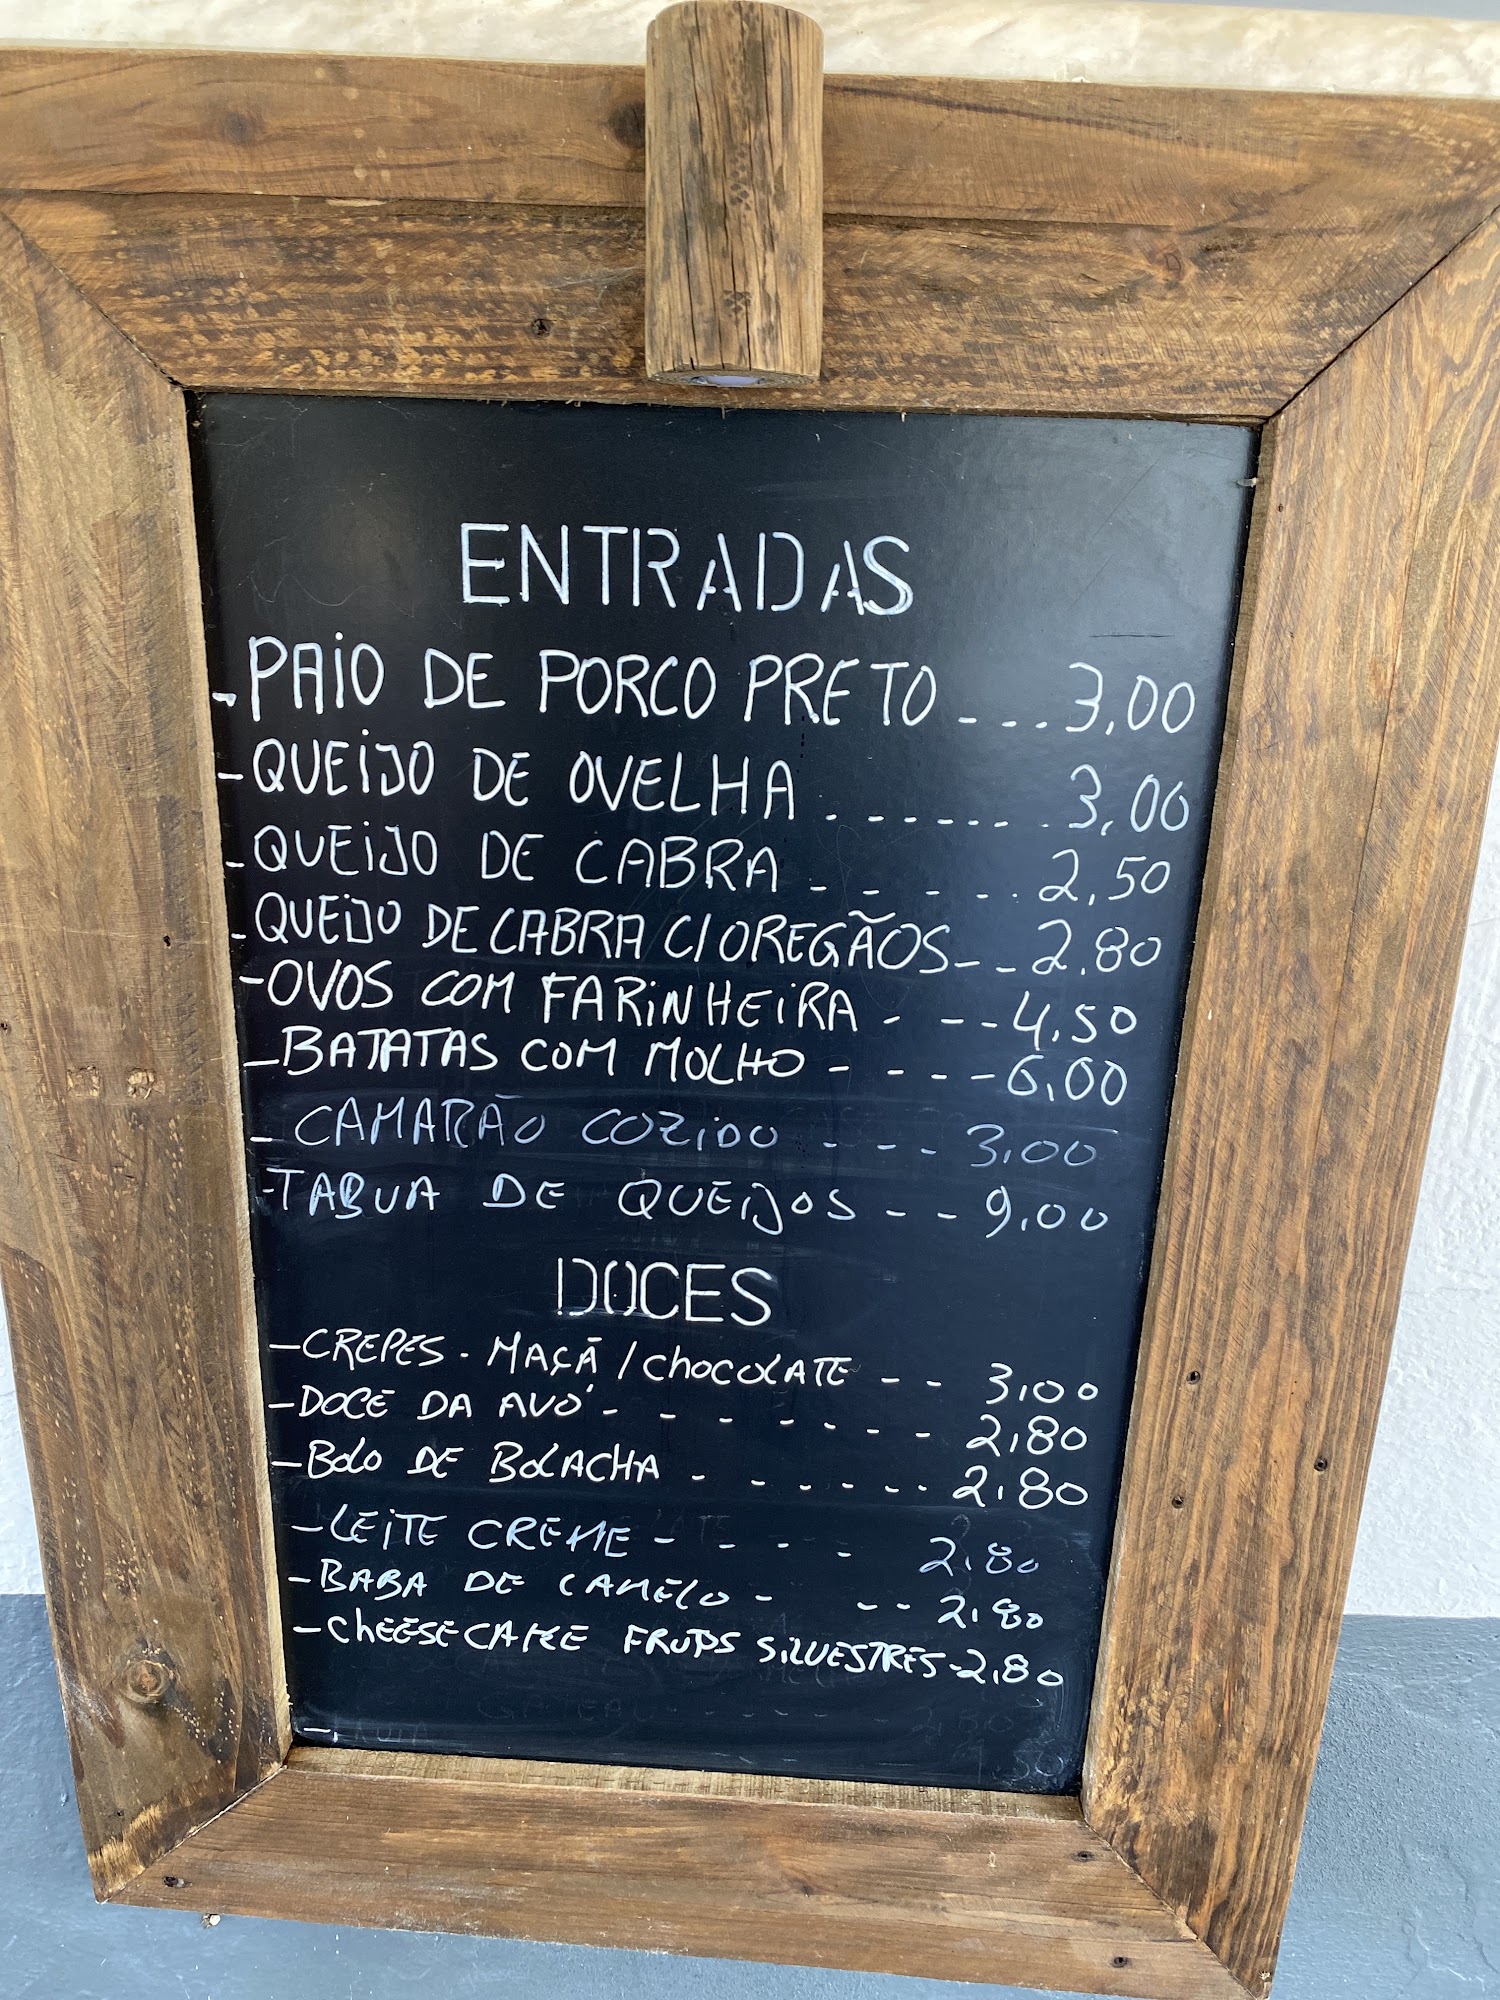 ENTRADAS
- PAIO DE PORCO PRETO - - - 3,00
- QUEIJO DE OVELHA . - - - - - . 3,00
- QUEIJO DE CABRA - - - - . 2,50
- QUEIJO DE CABRA C/OREGÃOS - - 2,80
- OVOS COM FARINHEIRA - - - 4,50
- BATATAS COM MOLHO - - - - 6,00
- CAMARÃO COZIDO - - - 3,00
- TABUA DE QUEIJOS - - 9,00
DOCES
- CREPES - MAÇÃ / CHOCOLATE - - 3,00
- DOCE DA AVÓ - - - - - - - 2,80
- BOLO DE BOLACHA - - - - - - 2,80
- LEITE CREME - - - - 2,80
- BABA DE CAMELO - - - 2,80
- CHEESECAKE FRUTOS SILVESTRES - 2,80